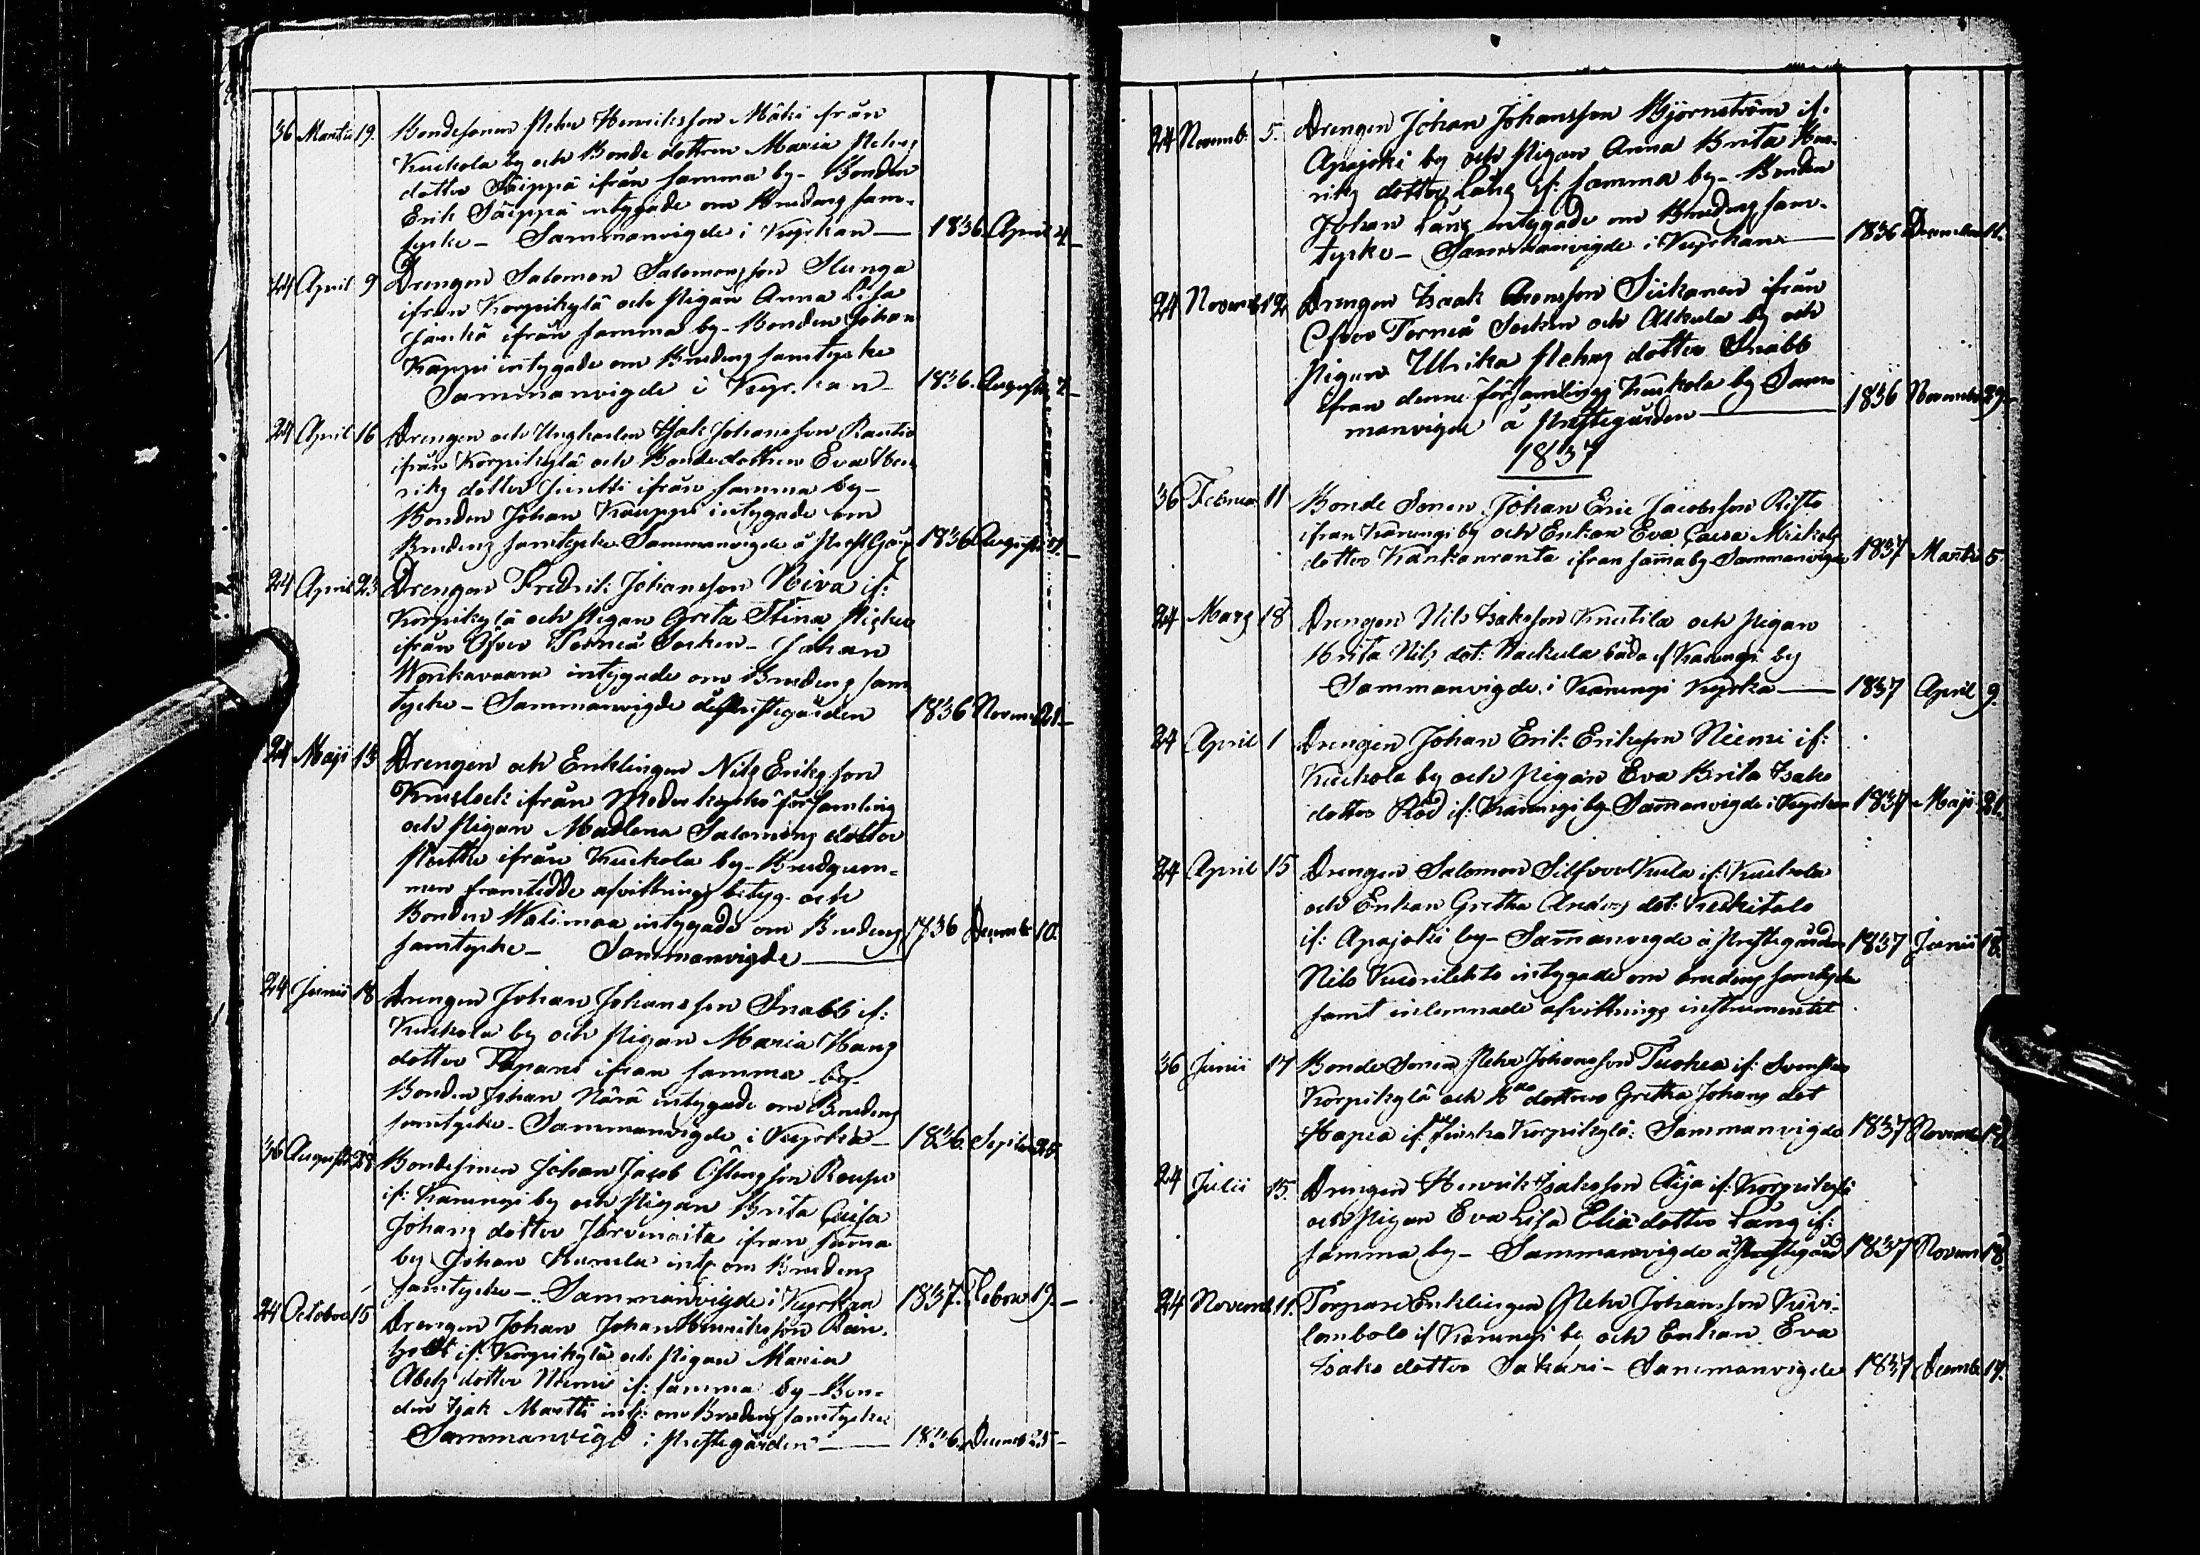 36 Martii 19. Bondesonen Petter Henriksson Mäki från
Kuckola by och Bonde dottren Maria Petters
dotter Säippä ifrån samma by - Bonden
Erik Säippä intygade om Brudens sam-
tycke - Sammanvigde i Kyrkan 1836. April 4
24 April 9 Drengen Salomon Salomonsson Slunga
ifrån Korpikylä och Pigan Anna Lisa
Junkä ifrån samma by - Bonden Johan
Kauppi intygade om Brudens samtycke
Sammanvigde i Kyrkan 1836. Augusti 7
24 April 16 Drengen och Ungkarlen Isak Johansson Rautio
ifrån Korpikylä och Bondedottren Eva Hen-
riks dotter Juntti ifrån samma by -
Bonden Johan Kauppi intygade om
Brudens samtycke Sammanvigde å PrestGård 1836 Augusti 21
24 April 23 Drengen Fredrik Johansson Niva if:
Korpikylä och Pigan Greta Stina
ifrån Öfver Torneå Socken - Johan
Workavaara intygade om Brudens sam
tycke - Sammanvigde å Prestegården 1836 Novem 21
24 Maji 15 Drengen och Enklingen Nils Eriksson
ifrån Moderkyrko församling
och Pigan Madlena Salomons dotter
ifrån Kuckola by - Brudgum-
men framtedde afvittrings betyg och
Bonden Walimaa intygade om Brudens
samtycke - Sammanvigde 1836 Decemb 10.
24 Junii 18 Drengen Johan Johansson Snabb if:
Kuckola by och Pigan Maria Hans
dotter Tapani ifrån samma by -
Bonden Johan Närä intygade om Brudens
samtycke - Sammanvigde i Kyrka 1836. Septe 25
36 Augusti 28 Bondesonen Johan Jacob Östensson Roupe
if: Karungi by och Pigan Brita Caisa
Johans dotter Järvinoita ifrån samma
by Johan intyg om Brudens
samtycke - Sammanvigde i Kyrkan 1837. Febru 19.
24 October 15 Drengen Johan Johan Henriksson Rein-
holt if: Korpikylä och Pigan Maria
Abels dotter Niemi if: samma by - Bon-
den Isak Martti int: om Brudens samtycke
Sammanvigd i Prestegården 1836. Decemb 25
24 Novemb. 5. Drengen Johan Johansson Björnström if:
Apajoki by och Pigan Anna Brita Hen-
riks dotter Lång if: samma by - Bonden
Johan Lång intygade om Brudens sam-
tycke - Sammanvigde i Kyrkan 1836 December 11.
24 Novemb 12 Drengen Isaak Aronsson Siikanen ifrån
Öfver Torneå Socken och Alkula by och
Pigan Ulrika Petters dotter Snabb
ifrån denne församlings Kuckola by Sam-
manvigde å Prestegården 1836 Novemb 29.
1837
36 Februa 11 Bonde Sonen Johan Eric Jacobsson Risto
ifrån Karungi by och Enkan Eva Caisa Mickels
dotter Kankanranta ifrån samma by Sammanvigde 1837 Martii 5
24 Mars 18 Drengen Nils Isaksson Knutila och Pigan
Brita Nils dot: båda if Karungi by
Sammanvigde i Karungi Kyrka 1837 April 9.
24 April 1 Drengen Johan Erik Eriksson Niemi if:
Kuckola by och Pigan Eva Brita Isaks
dotter Röd if: Karungi by Sammanvigde i Kyrkan 1837 Maji 21.
24 April 15 Drengen Salomon if: Kuckola
och Enkan Gretha Anders dot:
if: Apajoki by - Sammanvigde å Prestegården 1837 Junii 18.
Nils intygade om brudens samtycke
samt inlemnade afvittrings instrumentet
36 Junii 17 Bonde Sonen Petter Johansson if: Svenska
Korpikylä och Bde dottren Gretha Johans dot
Hapea if: Finska Korpikylä: Sammanvigde 1837 Novemb 12
24 Julii 15. Drengen Henrik Isaksson Äijä if: Korpikylä
och Pigan Eva Lisa Elia dotter Lång if:
samma by - Sammanvigde å Prestegård 1837 Novem 18.
24 Novemb. 11. Torpare Enklingen Petter Johansson Kuivi-
lombolo if Karungi by och Enkan Eva
Isaks dotter Sakari - Sammanvigde 1837 Decemb. 17.